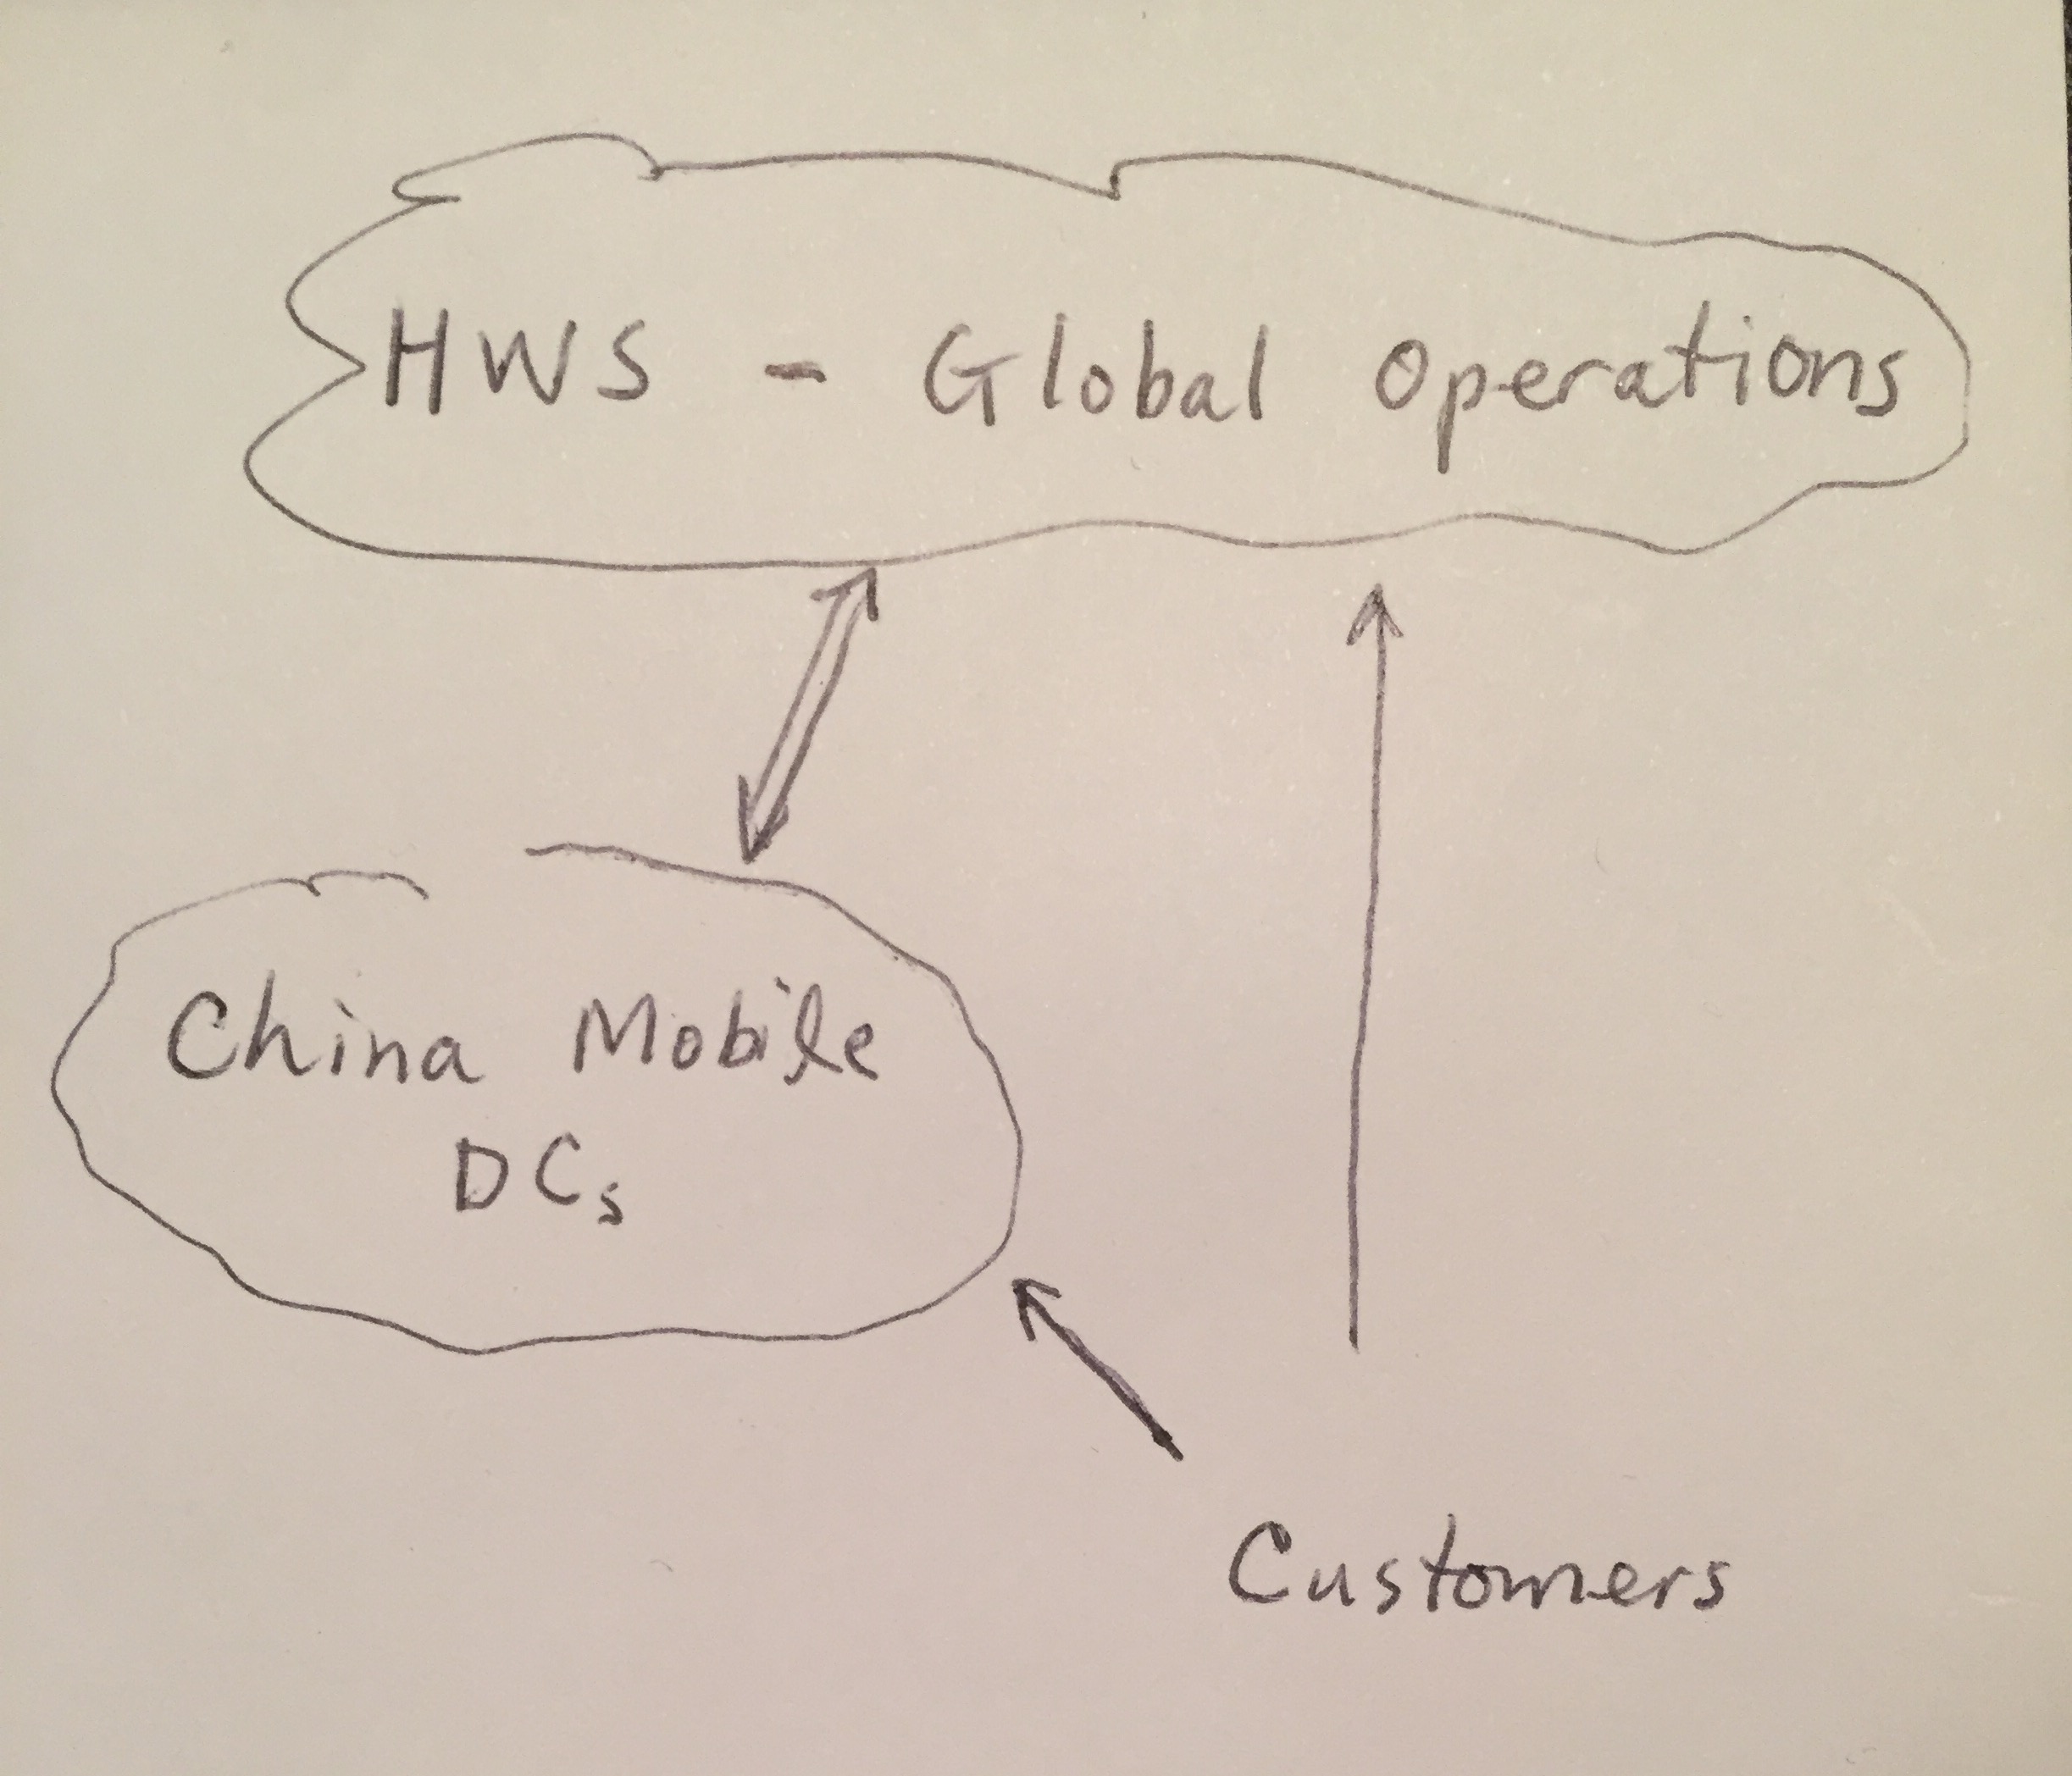 HWS - Global Operations
China Mobile
DCs
Customers